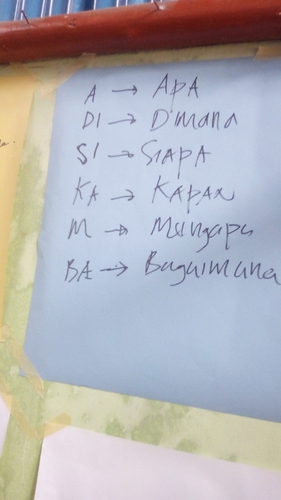 A → APA
DI → Dimana
SI → SIAPA
KA → KAPAN
M → Mengapa
BA → Bagaimana